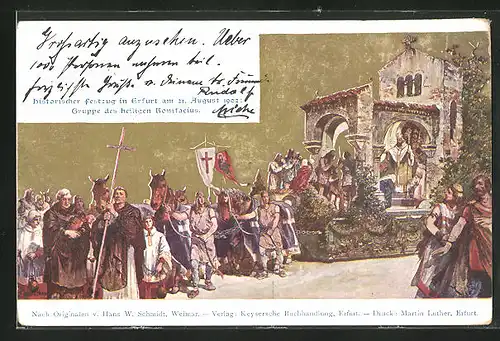 Großartig anzusehen. Ueber
1000 Personen nahmen teil.
Grüße
Rudolf
Historischer Festzug in Erfurt am 21. August 1902:
Gruppe des heiligen Bonifacius.
Nach Originalen v. Hans W. Schmidt, Weimar. — Verlag: Keysersche Buchhandlung, Erfurt. — Druck: Martin Luther, Erfurt.